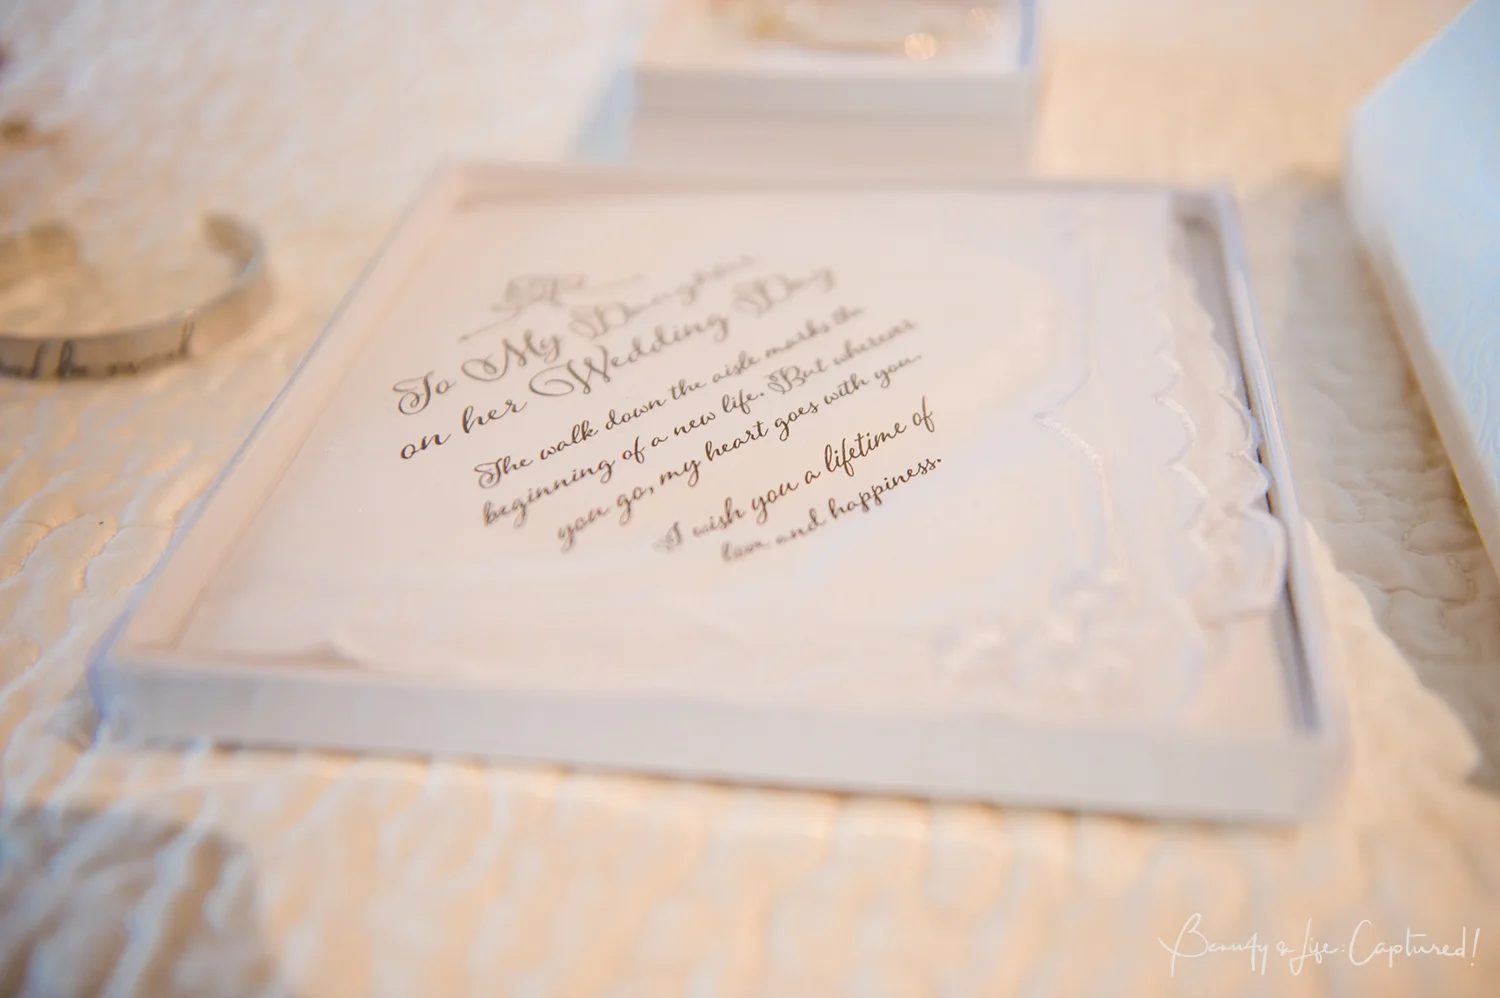 To My Daughter
on her Wedding Day
The walk down the aisle marks the
beginning of a new life. But wherever
you go, my heart goes with you.
I wish you a lifetime of
love and happiness.
Beauty & Life: Captured!